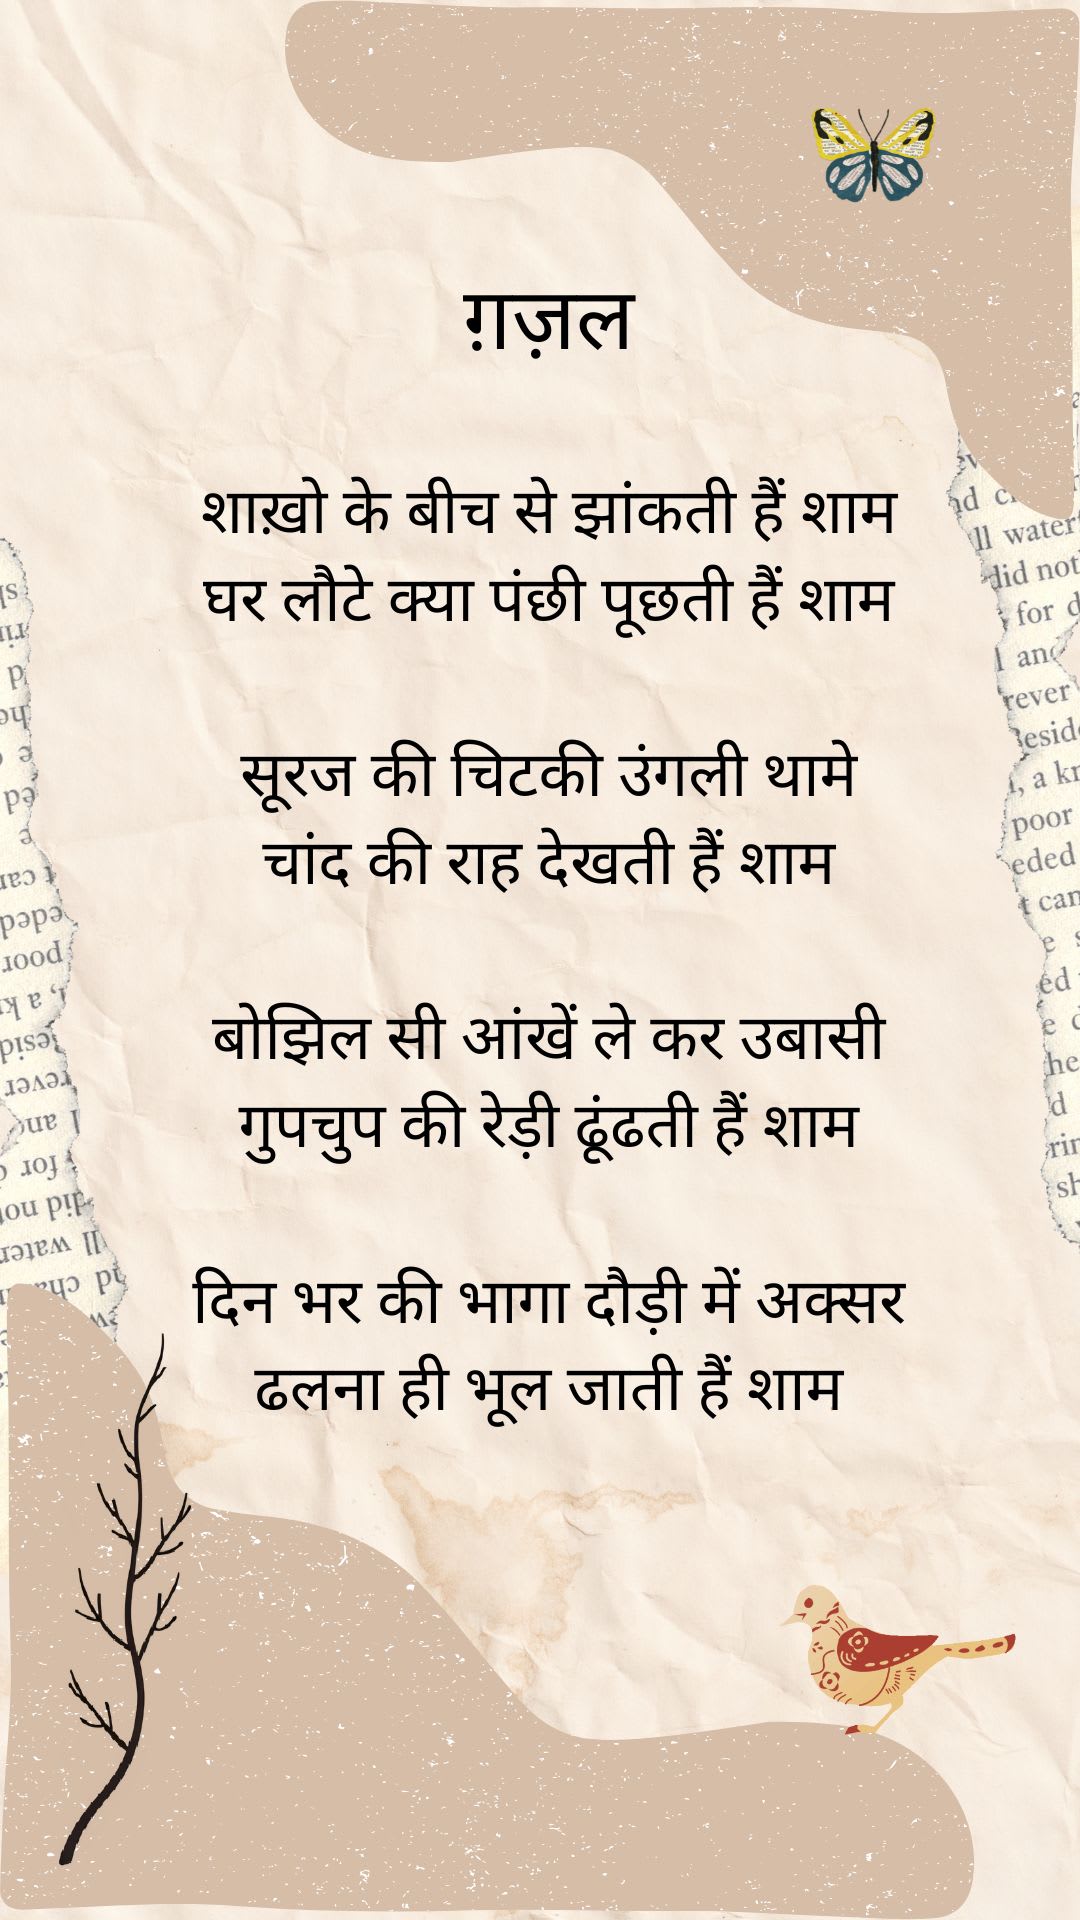 ग़ज़ल
शाख़ो के बीच से झांकती हैं शाम
घर लौटे क्या पंछी पूछती हैं शाम
सूरज की चिटकी उंगली थामे
चांद की राह देखती हैं शाम
बोझिल सी आंखें ले कर उबासी
गुपचुप की रेड़ी ढूंढती हैं शाम
दिन भर की भागा दौड़ी में अक्सर
ढलना ही भूल जाती हैं शाम